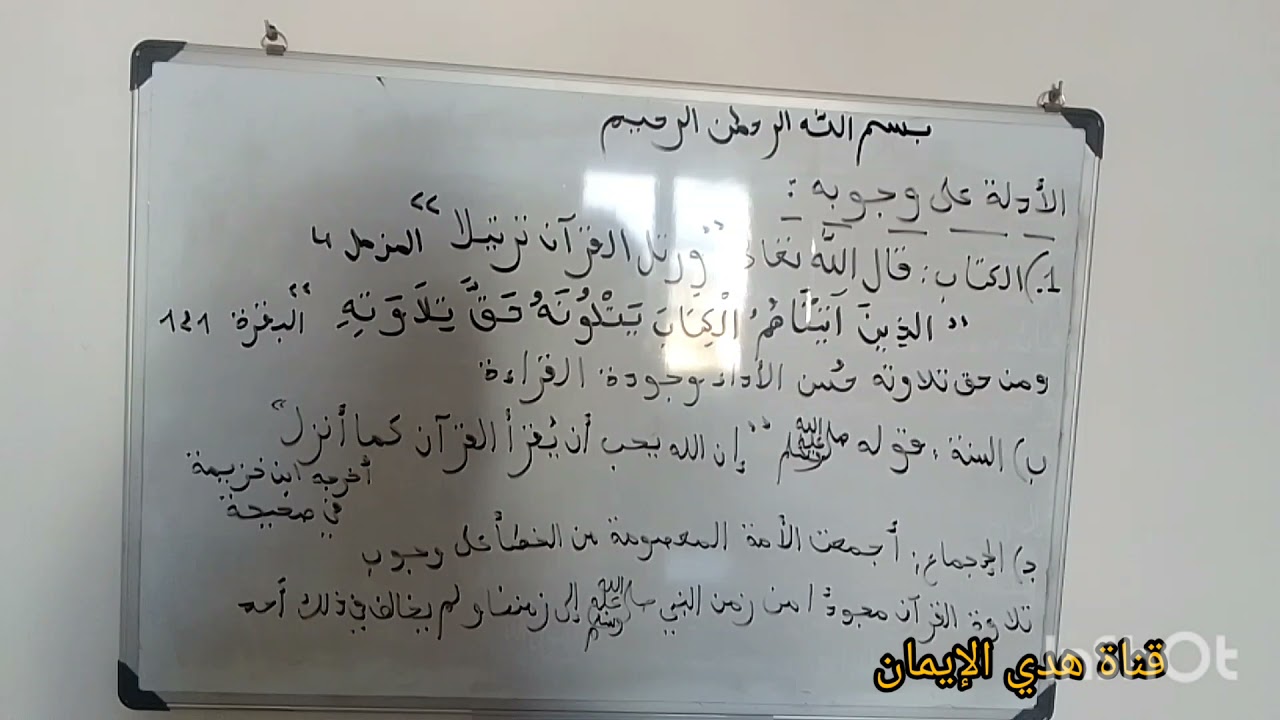 بسم الله الرحمن الرحيم
الأدلة على وجوبه :
1.) الكتاب : قال الله تعالى "ورتل القرآن ترتيلا" المزمل 4
"الذِينَ آتَيْنَاهُمُ الْكِتَابَ يَتْلُونَهُ حَقَّ تِلَاوَتِهِ" البقرة 121
ومن حق تلاوته حُسن الأداء وجودة القراءة
ب) السنة : قوله ﷺ "إن الله يحب أن يُقرأ القرآن كما أُنزل"
أخرجه ابن خزيمة
في صحيحة
ج) الإجماع : أجمعت الأمة المعصومة من الخطأ على وجوب
تلاوة القرآن مجودا من زمن النبي ﷺ إلى زمننا ولم يخالف في ذلك أحد
قناة هدي الإيمان
InShOt